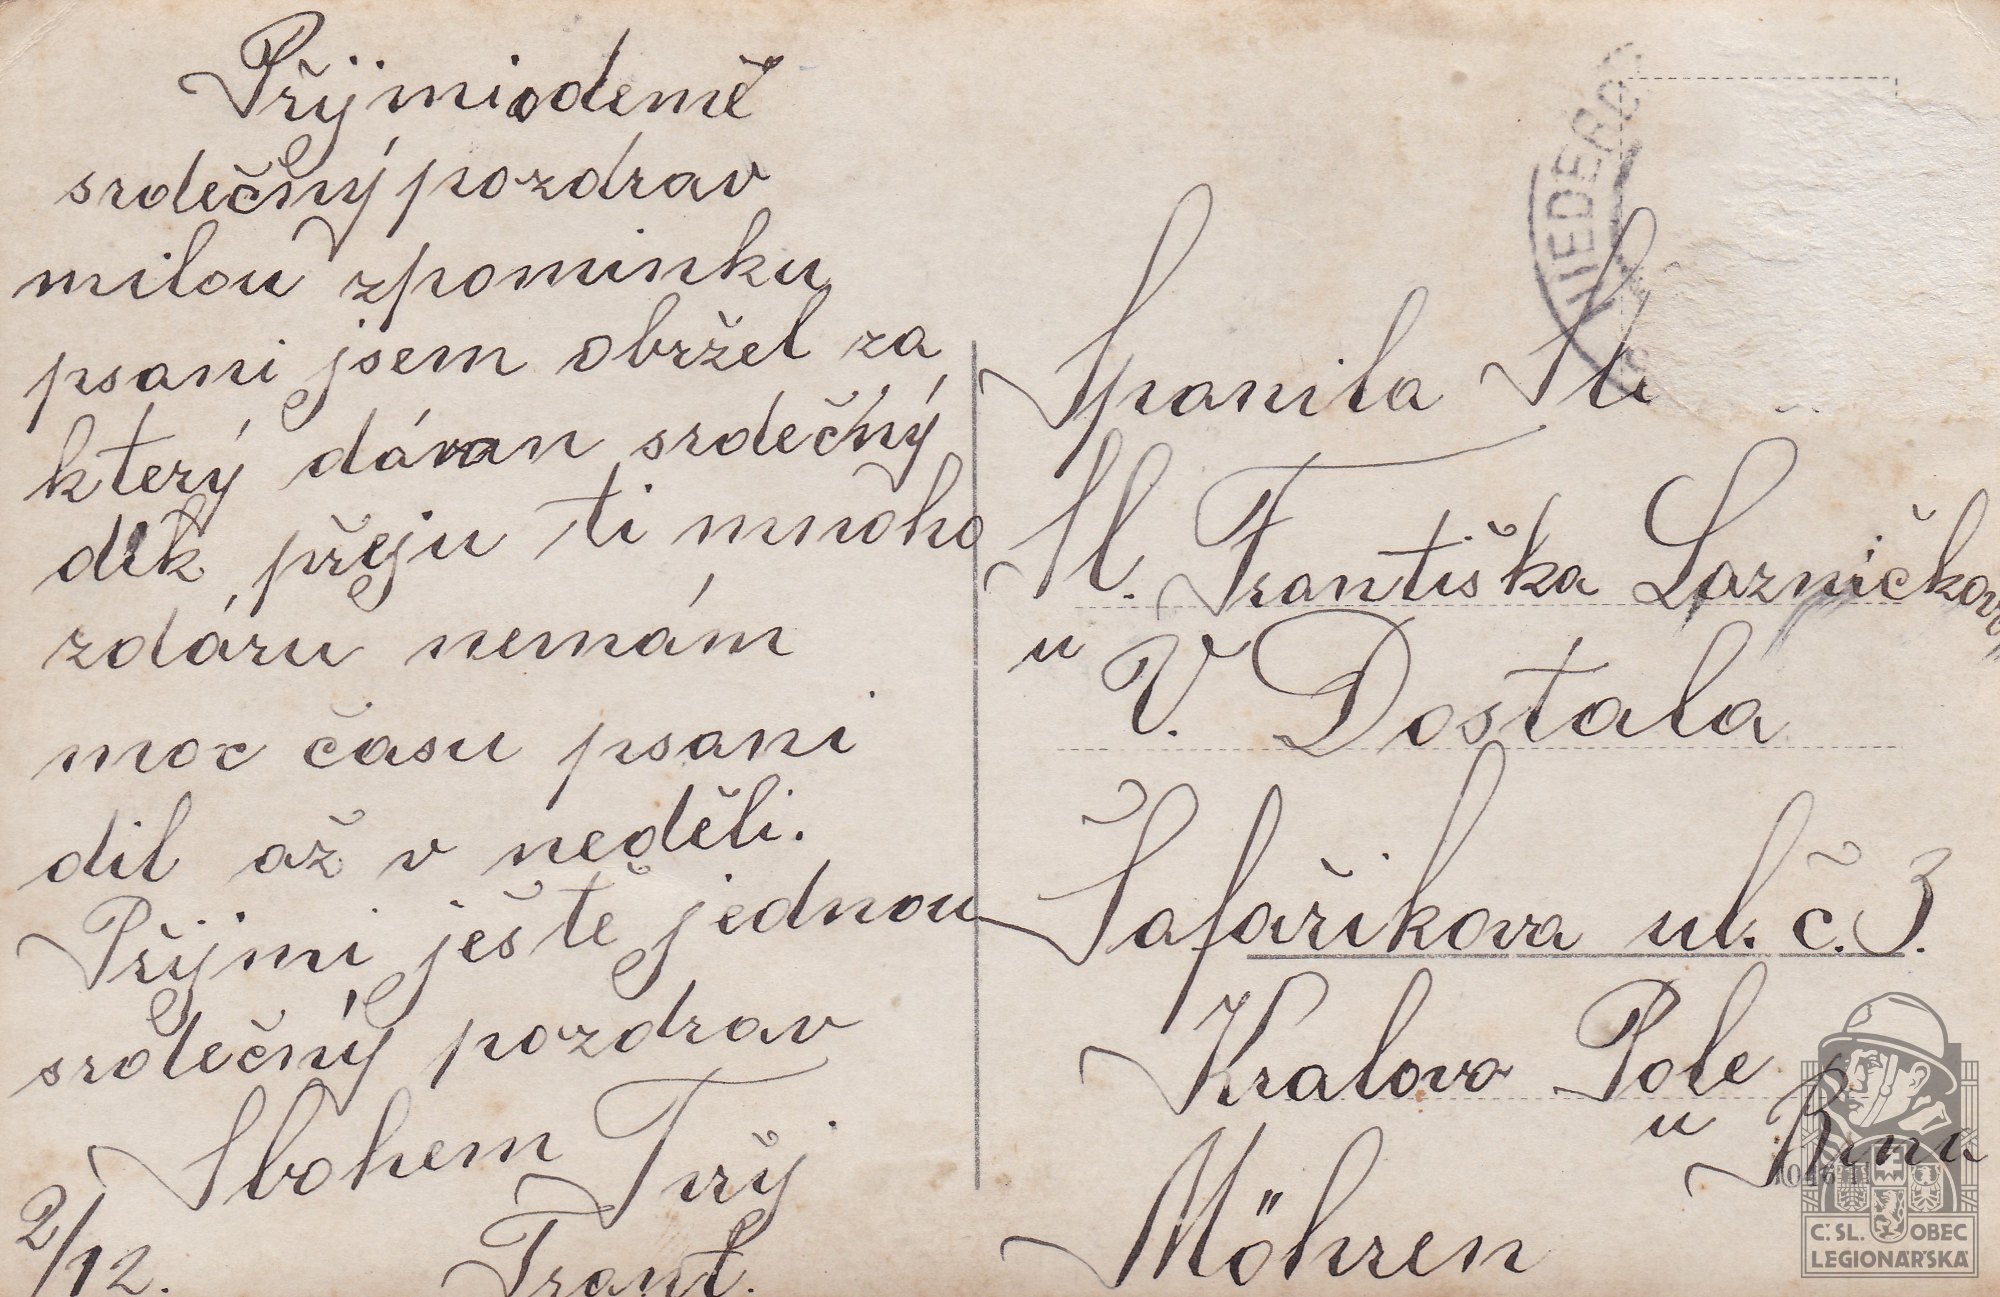 Přijmiodemě
srdečný pozdrav
milou zpominku
psani jsem obržel za
který dávan srdečný
dik přeju ti mnoho
zdáru nemám
moc času psani
dil až v neděli.
Přijmi ješte jednou
srdečný pozdrav
Sbohem Tvŷj
2/12. Frant.
NIEDERDO
Spanila Sl
Sl. Františka Lazničkova
u V. Dostala
Šafařikova ul. č. 3.
Kralovo Pole
u Brna
Möhren
Č.SL. OBEC
LEGIONÁŘSKÁ